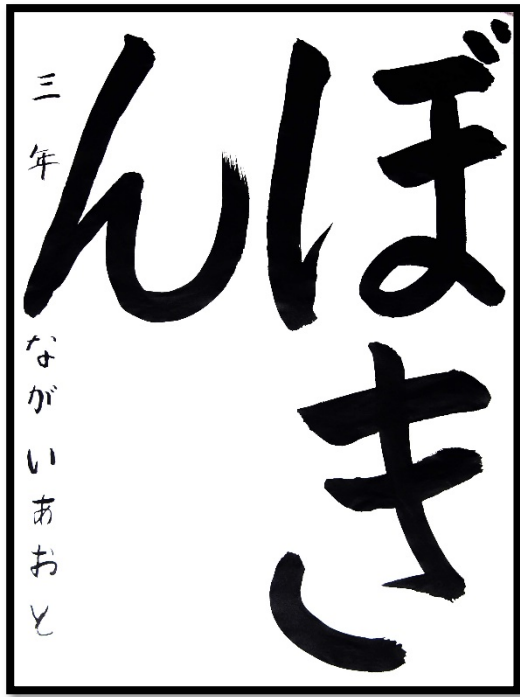 ぼき
ん
三年 ながいあおと